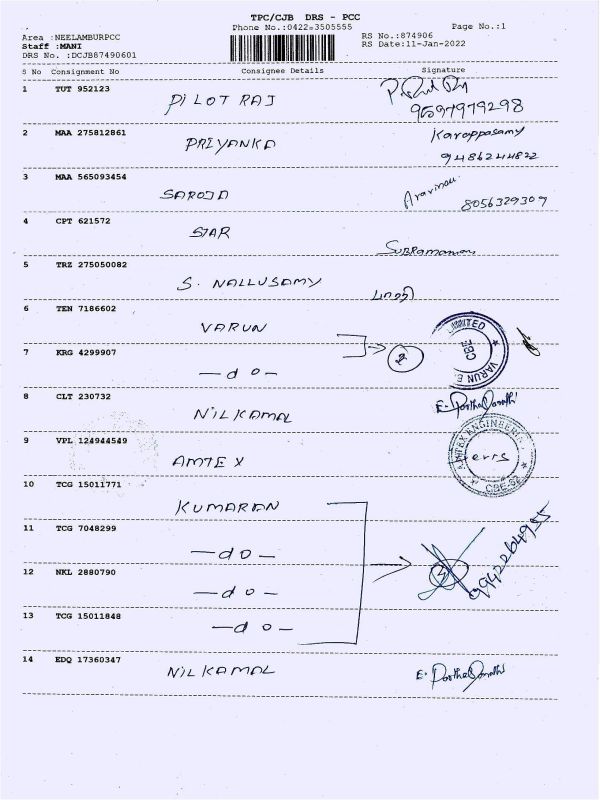 TPC/CJB DRS - PCC
Phone No.:0422-3505555 Page No.:1
Area :NEELAMBURPCC RS No.:874906
Staff :MANI RS Date:11-Jan-2022
DRS No. :DCJB87490601
S No Consignment No Consignee Details Signature
1 TUT 952123 PILOT RAJ
9697979298
2 MAA 275812861 PRIYANKA Karoppasamy
9486244822
3 MAA 565093454 SAROJA Aravinth
8056329307
4 CPT 621572 STAR Subramanian
5 TRZ 275050082 S. NALLUSAMY
6 TEN 7186602 VARUN LIMITED CBE VARUN
7 KRG 4299907 — do — 2
8 CLT 230732 NILKAMAL E. Parthasarathi
9 VPL 124944549 AMTEX AMTEX ENGINEERING
10 TCG 15011771 KUMARAN
11 TCG 7048299 — do —
12 NKL 2880790 — do — 4 9942264955
13 TCG 15011848 — do —
14 EDQ 17360347 NILKAMAL E. Parthasarathi